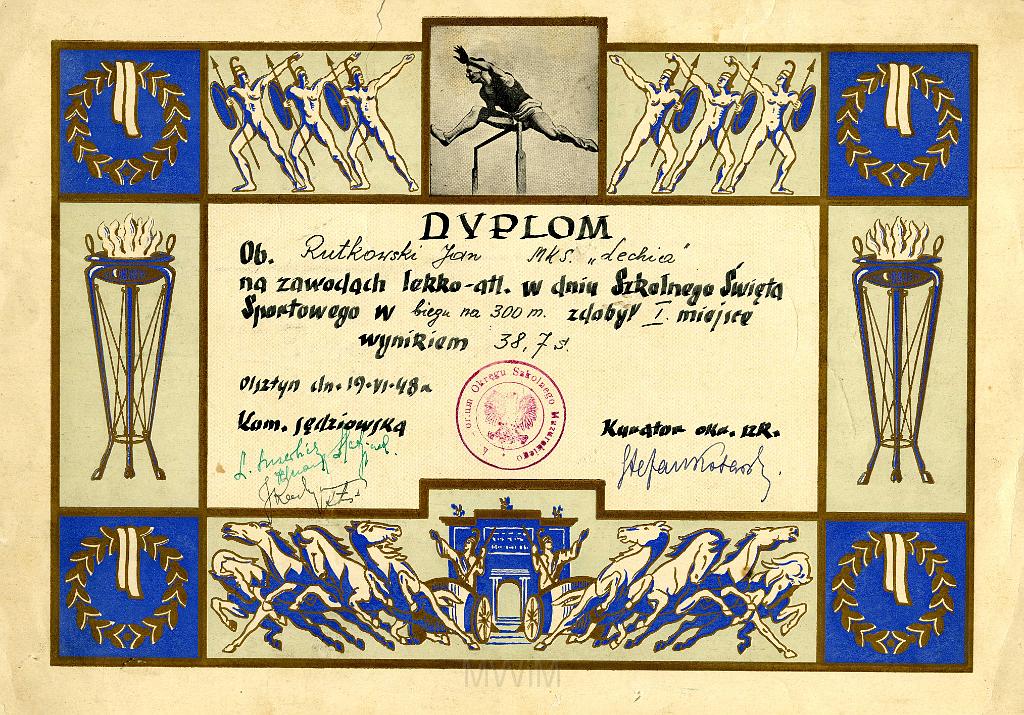 DYPLOM
Ob. Rutkowski Jan MKS. „Lechia"
na zawodach lekko-atl. w dniu Szkolnego Święta
Sportowego w biegu na 300 m. zdobył I. miejsce
wynikiem 38,7 s.
Olsztyn dn. 19-VI-48 r.
Okręgu Szkolnego Mazurskiego
Kom. sędziowska
Kurator okr. szk.
MWiM